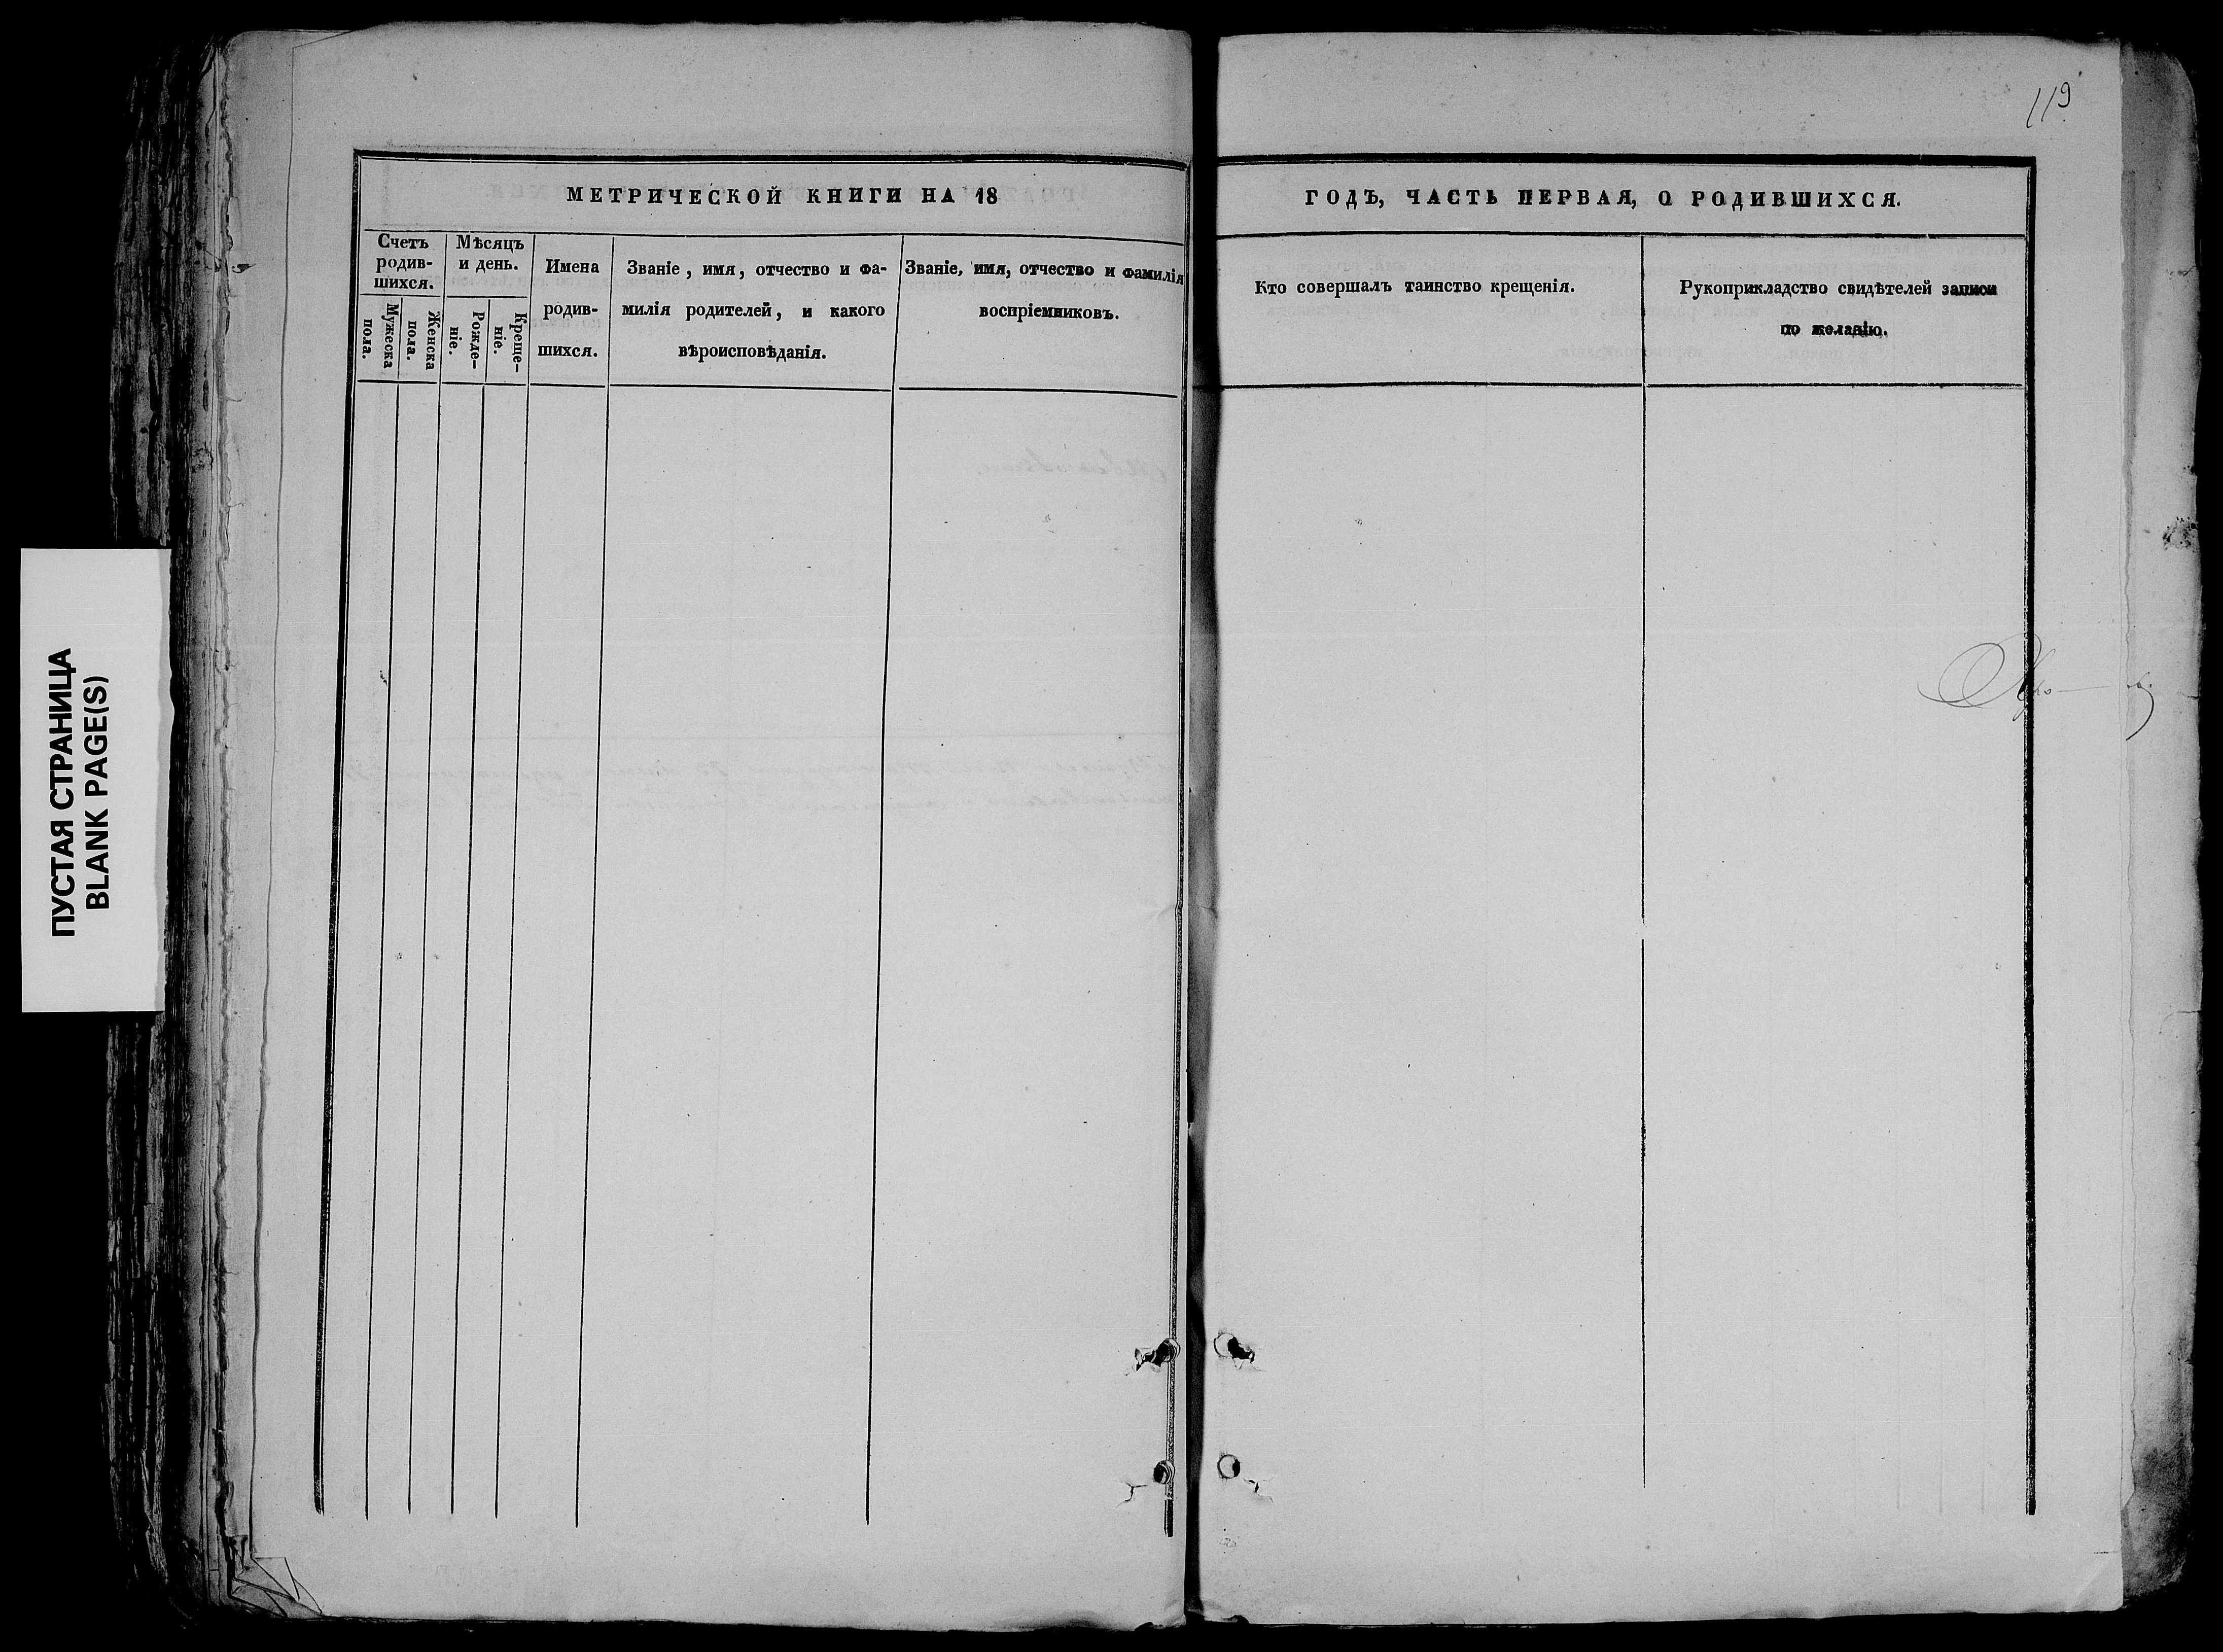 119
МЕТРИЧЕСКОЙ КНИГИ НА 18
Счетъ
родив-
шихся.
Мужеска
пола.
Женска
пола.
Мѣсяцъ
и день.
Рожде-
ніе.
Креще-
ніе.
Имена
родив-
шихся.
Званіе, имя, отчество и фа-
милія родителей, и какого
вѣроисповѣданія.
Званіе, имя, отчество и фамилія
воспріемниковъ.
ГОДЪ, ЧАСТЬ ПЕРВАЯ, О РОДИВШИХСЯ.
Кто совершалъ таинство крещенія.
Рукоприкладство свидѣтелей записи
по желанію.
ПУСТАЯ СТРАНИЦА
BLANK PAGE(S)